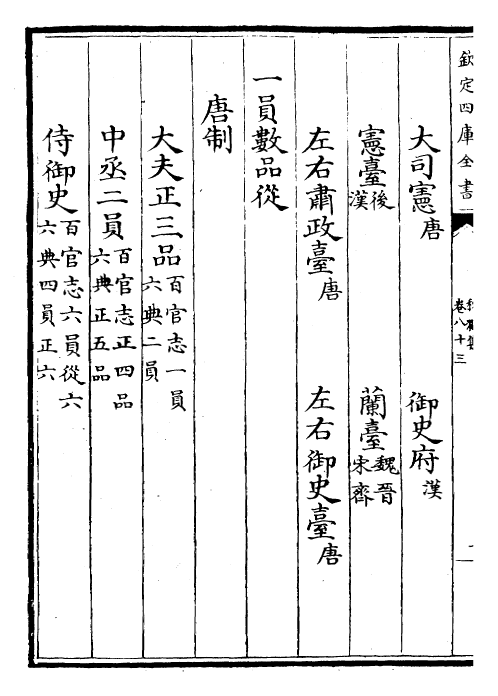 欽定四庫全書
卷八十三
大司憲唐　御史府漢
憲臺後漢　蘭臺魏晉宋齊
左右肅政臺唐　左右御史臺唐
一員數品從
唐制
大夫正三品百官志一員六典二員
中丞二員百官志正四品六典正五品
侍御史百官志六員從六六典四員正六